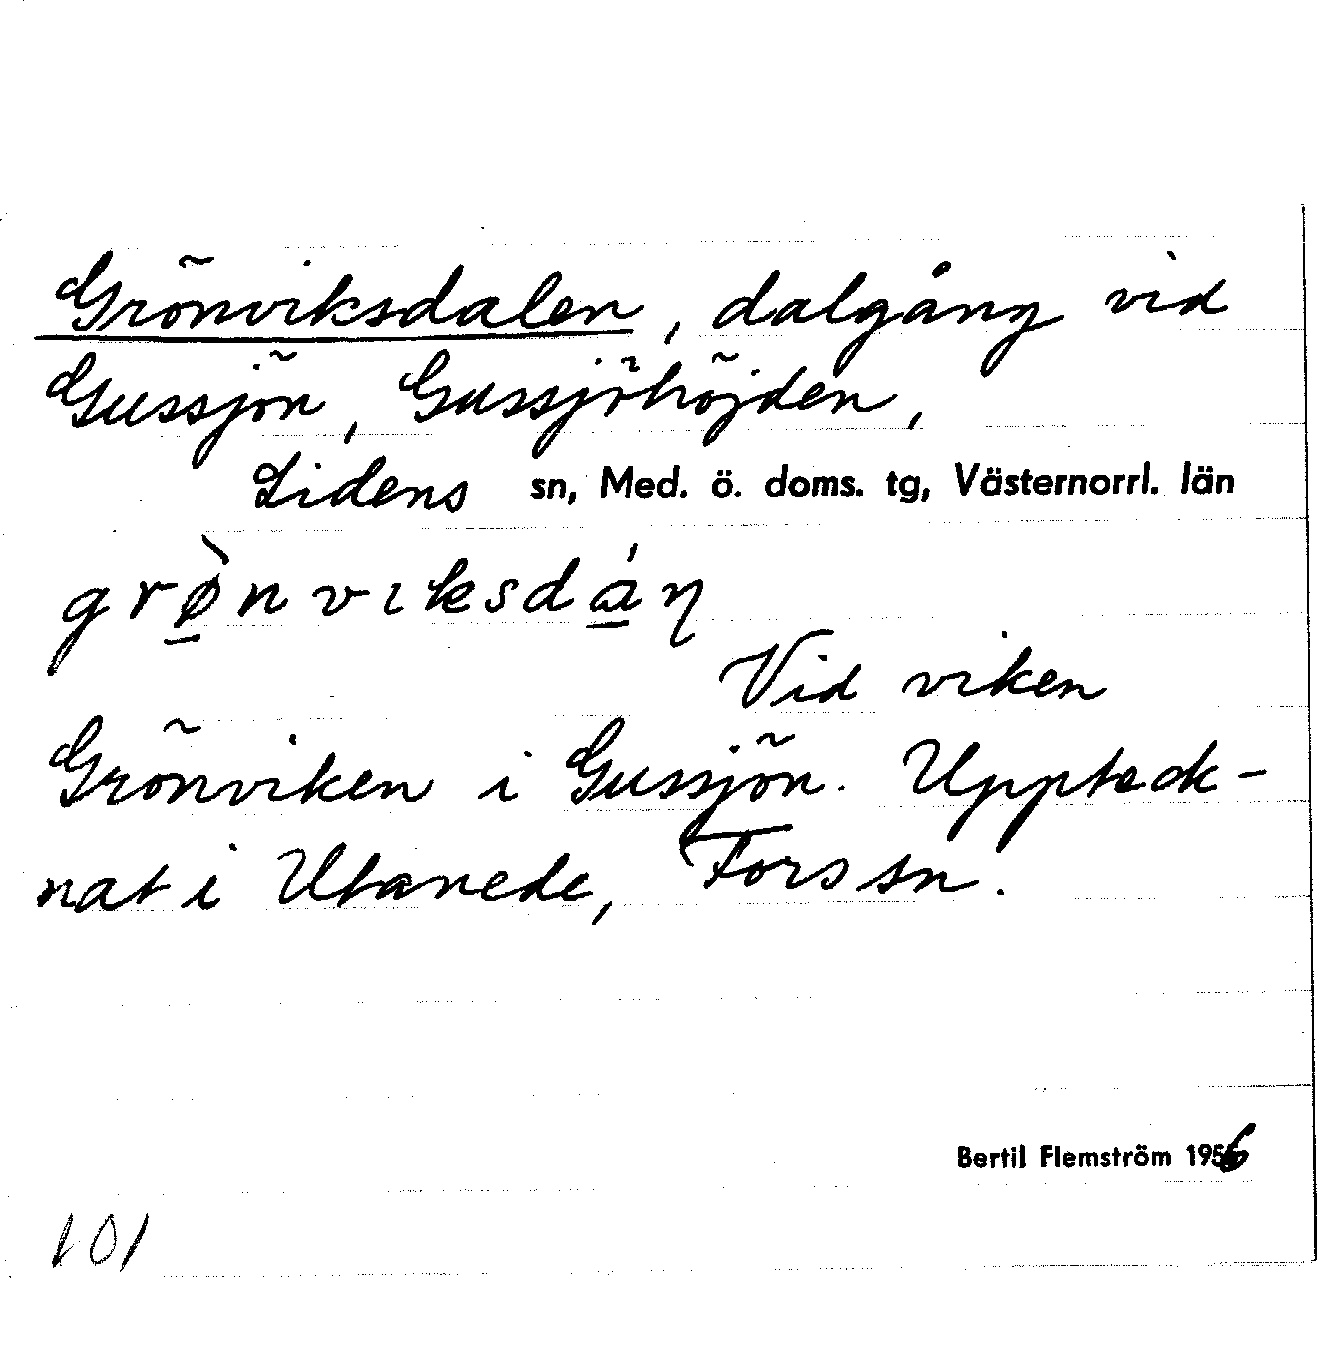 Grönviksdalen, dalgång vid
Gussjön, Gussjöhöjden,
Lidens sn, Med. ö. doms. tg, Västernorrl. län
grø̲̀nvıksdá̲ŋ
Vid viken
Grönviken i Gussjön. Uppteck-
nat i Utanede, Fors sn.
Bertil Flemström 1956
101